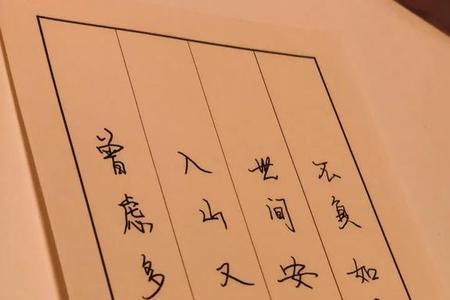 曾虑多
入山又
世间安
不負如